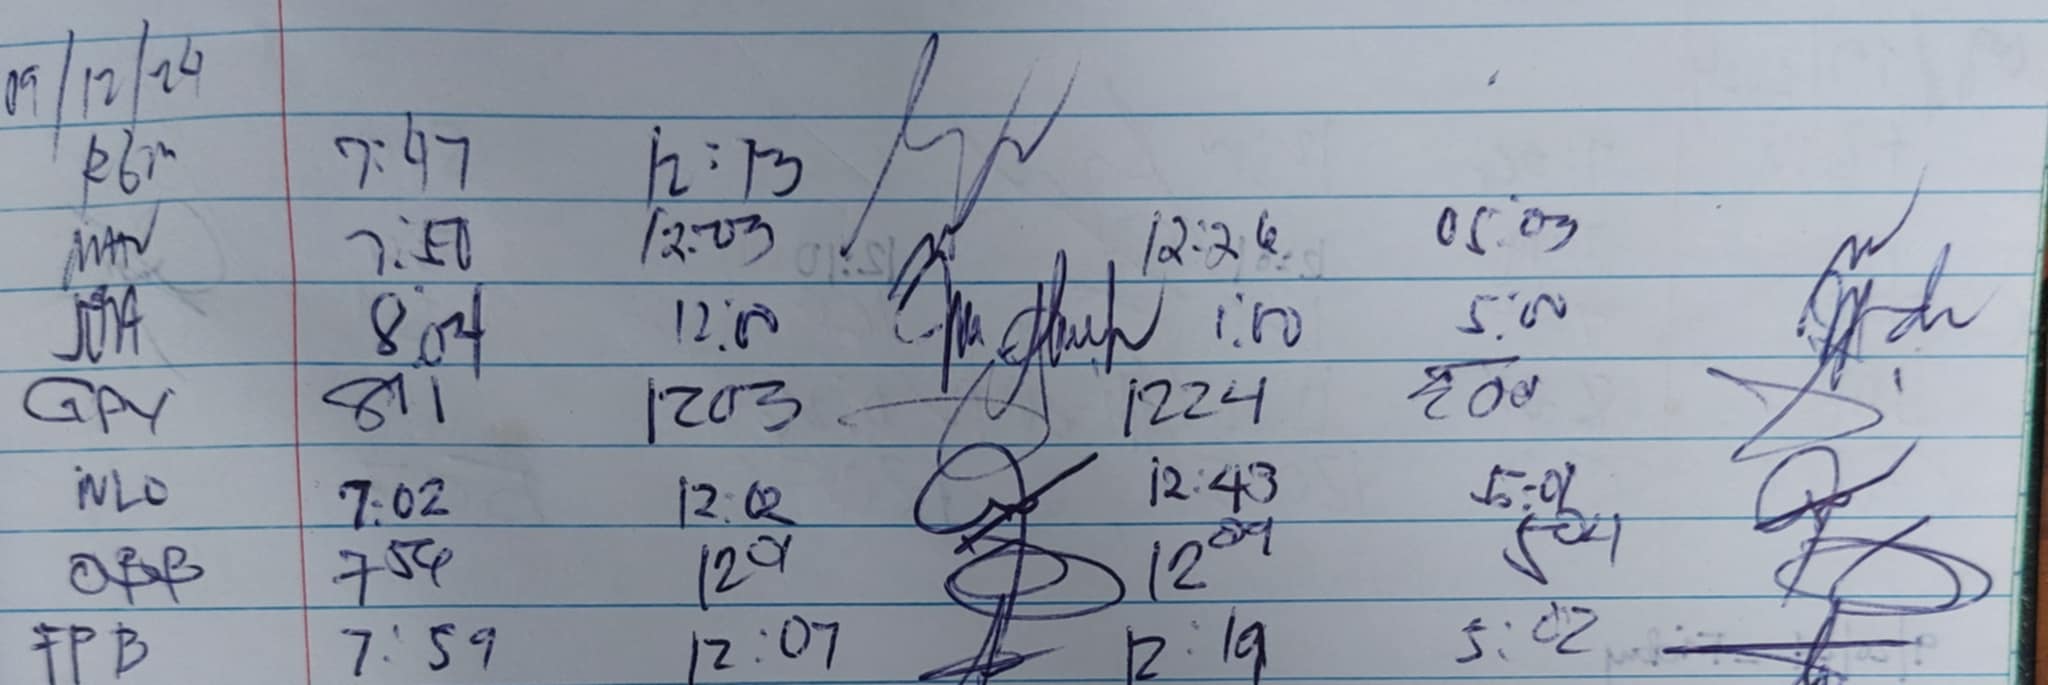 09/12/24
RGM 7:47 12:13
MAN 7:50 12:03 12:26 05:03
JOA 8:04 12:00 1:00 5:00
GPY 811 1203 1224 500
NLO 7:02 12:02 12:43
OBB 754 1201 1209 504
FPB 7:59 12:07 12:19 5:02